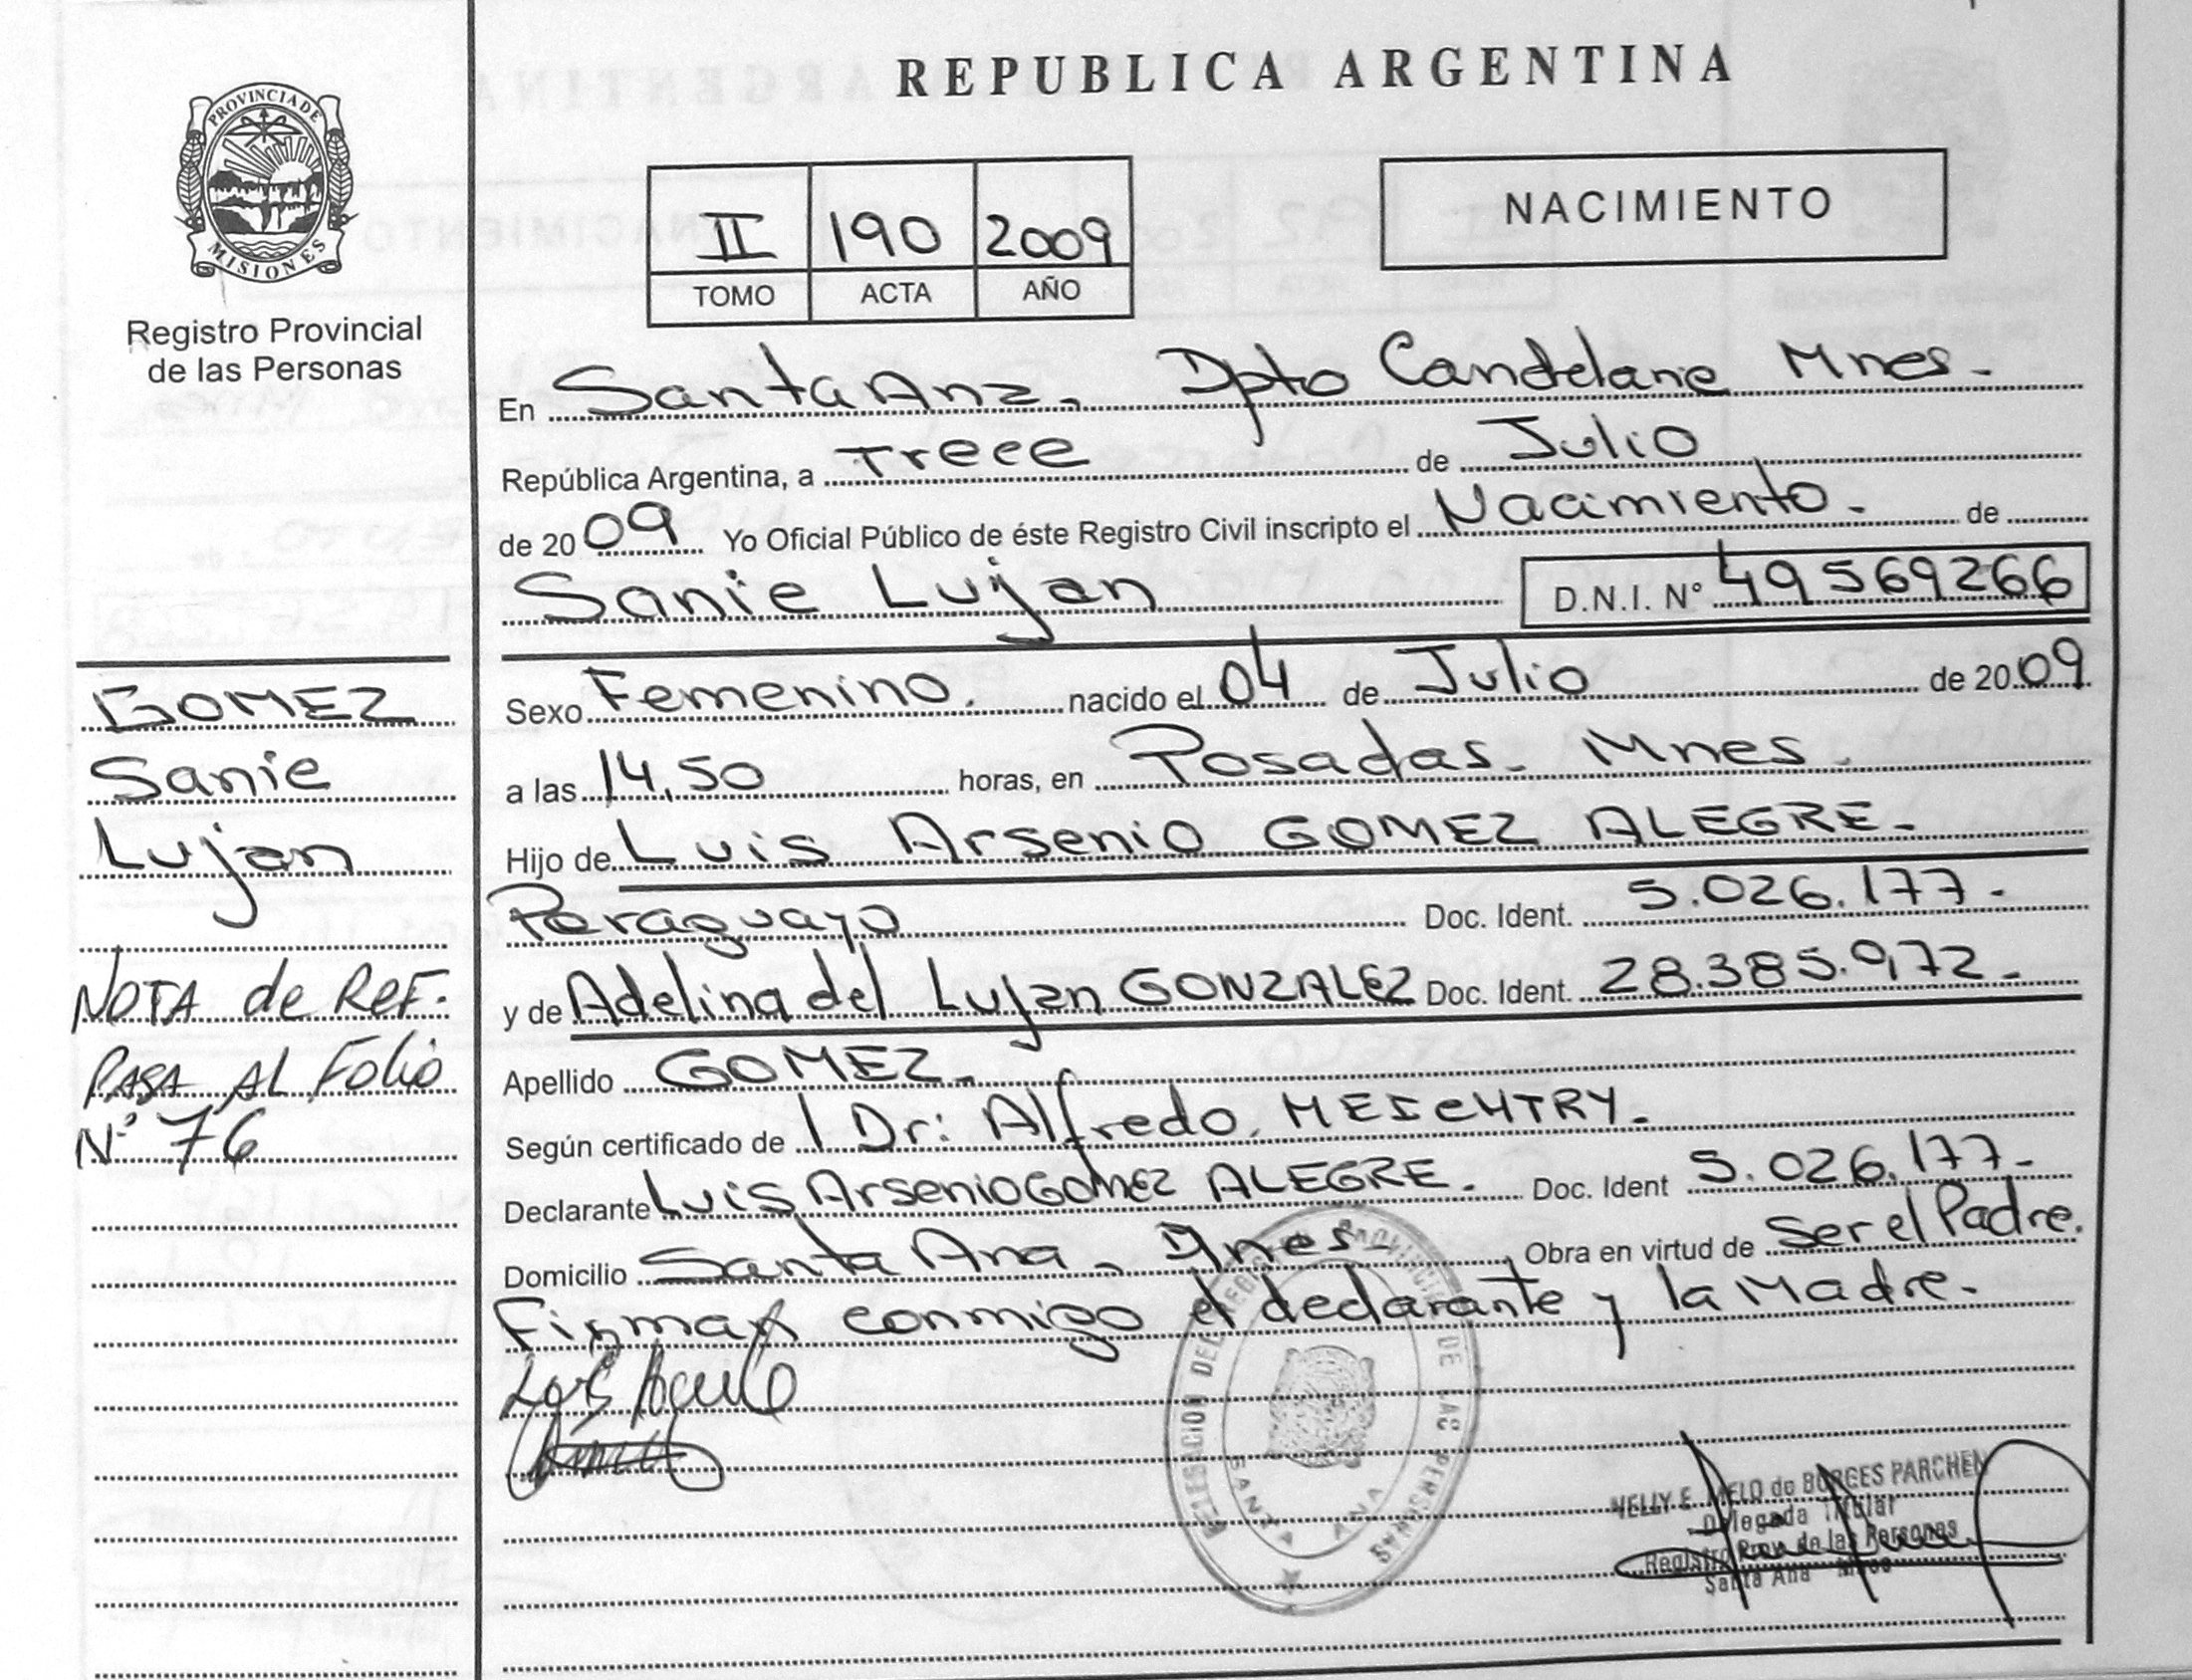 REPUBLICA ARGENTINA
PROVINCIA DE
MISIONES
Registro Provincial
de las Personas
II 190 2009
TOMO ACTA AÑO
NACIMIENTO
En Santa Ana, Dpto Candelaria Mnes.
República Argentina, a Trece de Julio
de 2009 Yo Oficial Público de éste Registro Civil inscripto el Nacimiento. de
Sanie Lujan D.N.I. N° 49569266
GOMEZ
Sanie
Lujan
NOTA de REF.
PASA AL Folio
N° 76
Sexo Femenino. nacido el 04 de Julio de 2009
a las 14,50 horas, en Posadas. Mnes.
Hijo de Luis Arsenio GOMEZ ALEGRE.
Paraguayo Doc. Ident. 5.026.177.
y de Adelina del Lujan GONZALEZ Doc. Ident. 28.385.972.
Apellido GOMEZ.
Según certificado de Dr: Alfredo,
Declarante Luis Arsenio GOMEZ ALEGRE. Doc. Ident 5.026.177.
Domicilio Santa Ana, Mnes. Obra en virtud de Ser el Padre.
Firman conmigo el declarante y la Madre.
DELEGACION DEL REGISTRO PROVINCIAL DE LAS PERSONAS
SANTA ANA
NELLY E. MELO de BORGES PARCHEN
Delegada Titular
Registro Prov. de las Personas
Santa Ana Mnes